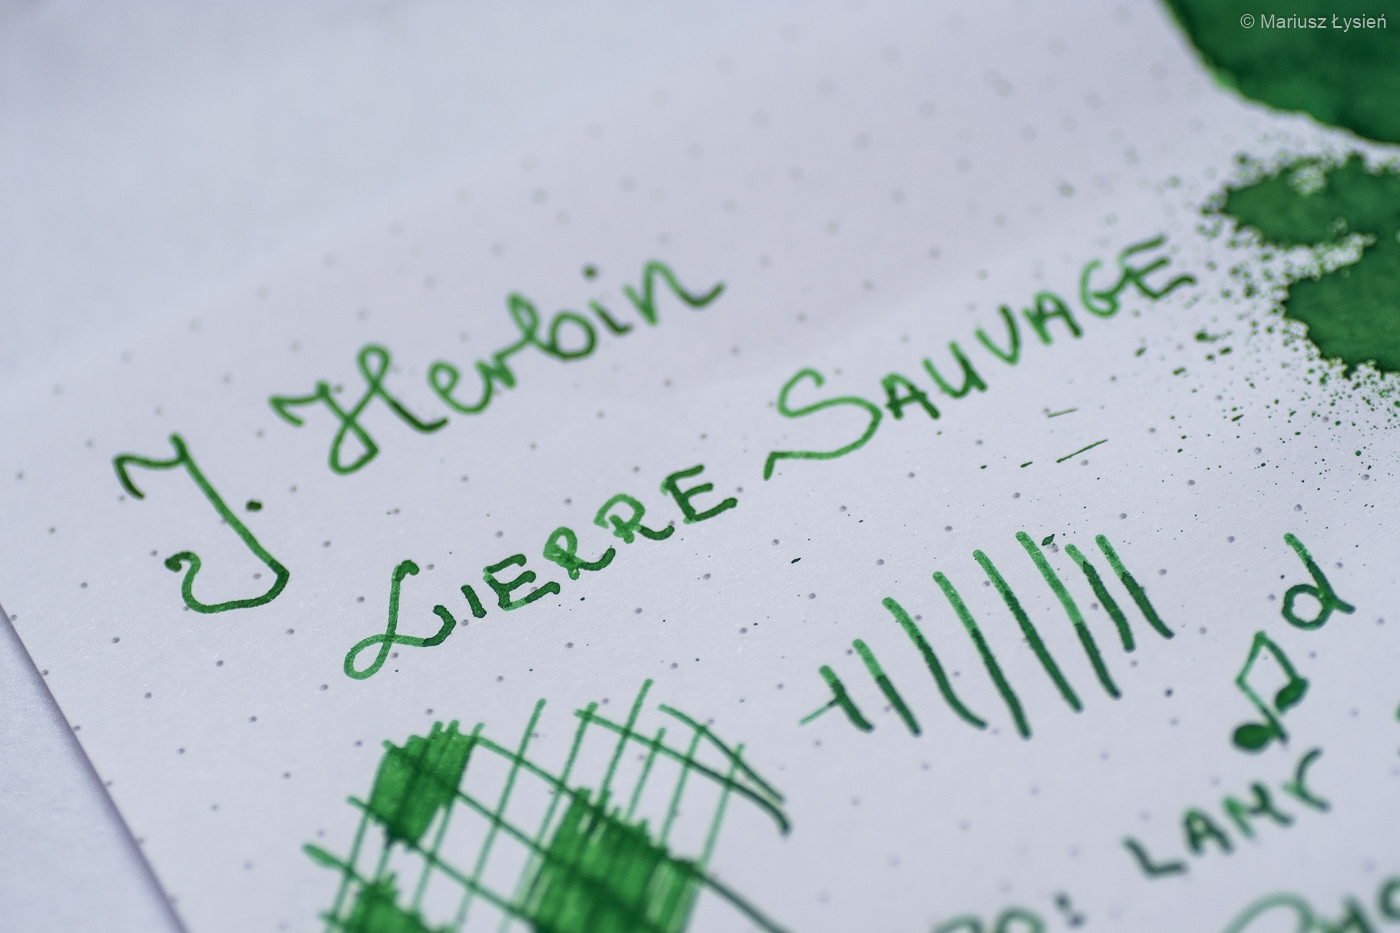 © Mariusz Łysień
J. Herbin
Lierre Sauvage
LAMY